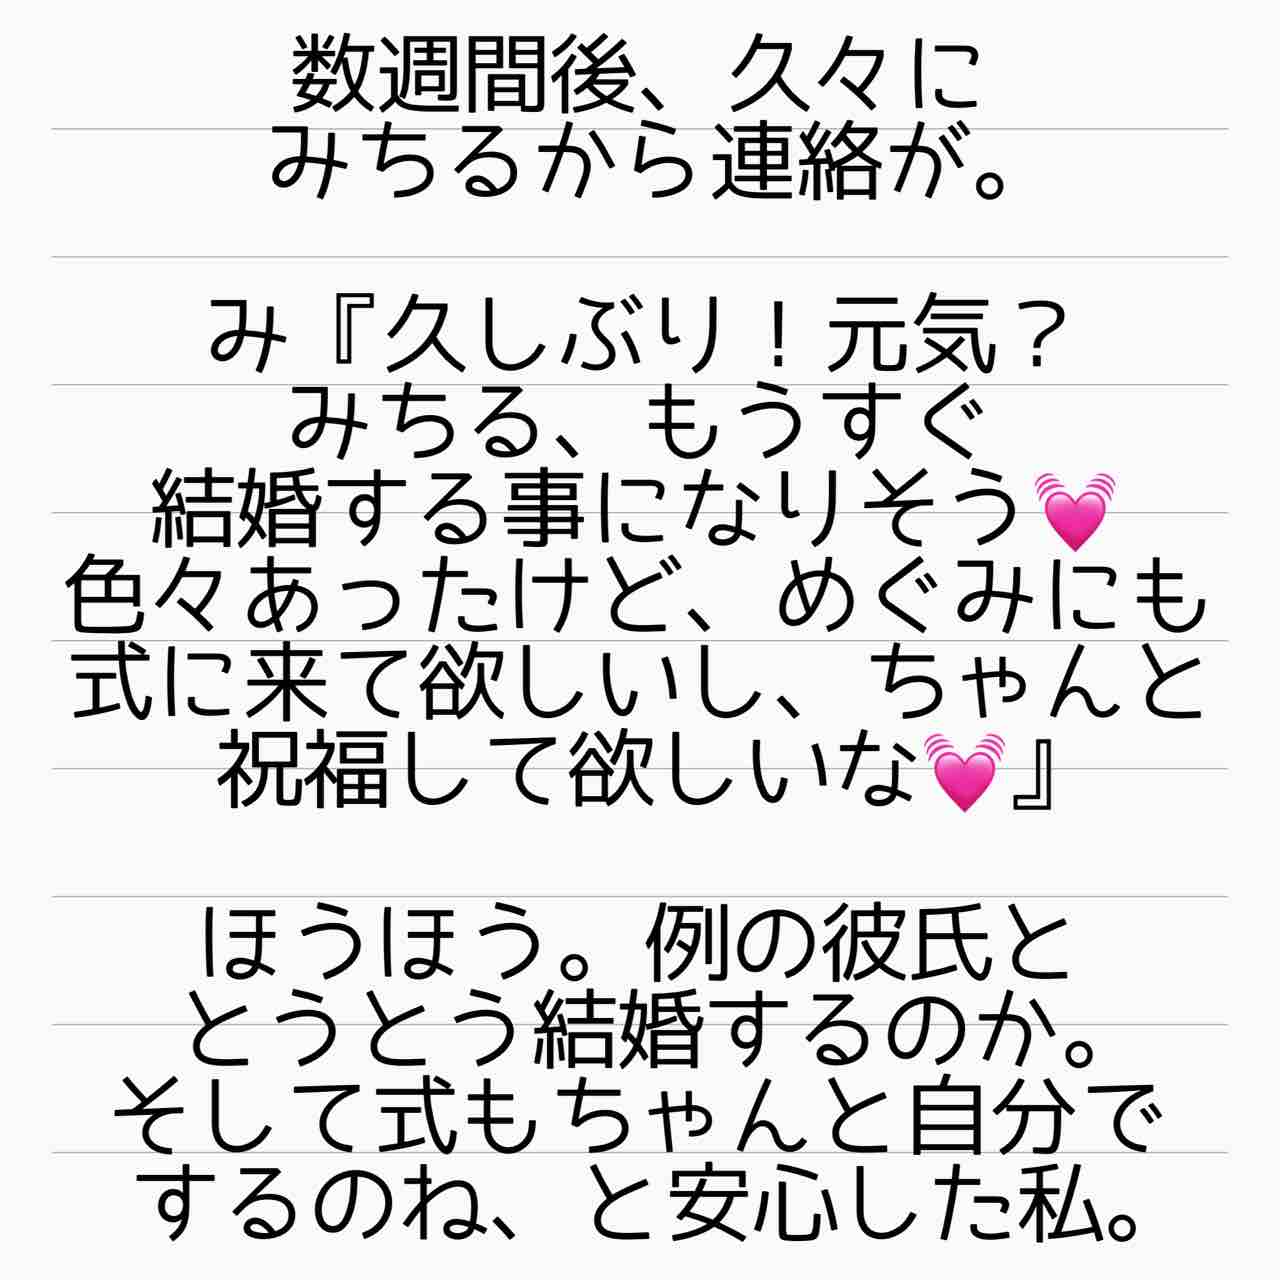 数週間後、久々に
みちるから連絡が。
み『久しぶり！元気？
みちる、もうすぐ
結婚する事になりそう💓
色々あったけど、めぐみにも
式に来て欲しいし、ちゃんと
祝福して欲しいな💓』
ほうほう。例の彼氏と
とうとう結婚するのか。
そして式もちゃんと自分で
するのね、と安心した私。